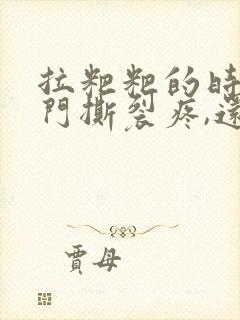 拉粑粑的時
門撕裂疼,還
賈母